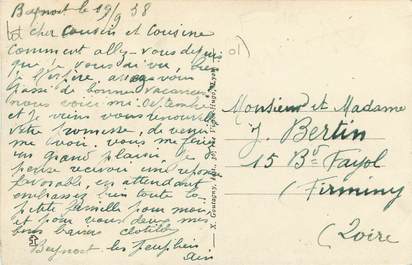 Beynost le 19/9 38
cher cousin et cousine
comment allez-vous depuis
que je vous ai vu, bien
je l'espère, avez vous
passé de bonnes vacances
nous voici mi septembre
et je viens vous renouveler
votre promesse, de venir
me voir. vous me feriez
un grand plaisir, je
pense recevoir une réponse
favorable, en attendant
embrassez bien toute la
petite famille pour moi
et pour vous deux mes
bons baisers clotilde
Beynost les peupliers
Ain
01
X. Goutagny, édit.
Monsieur et Madame
J. Bertin
15 Bd Fayol
(Firminy
(Loire)